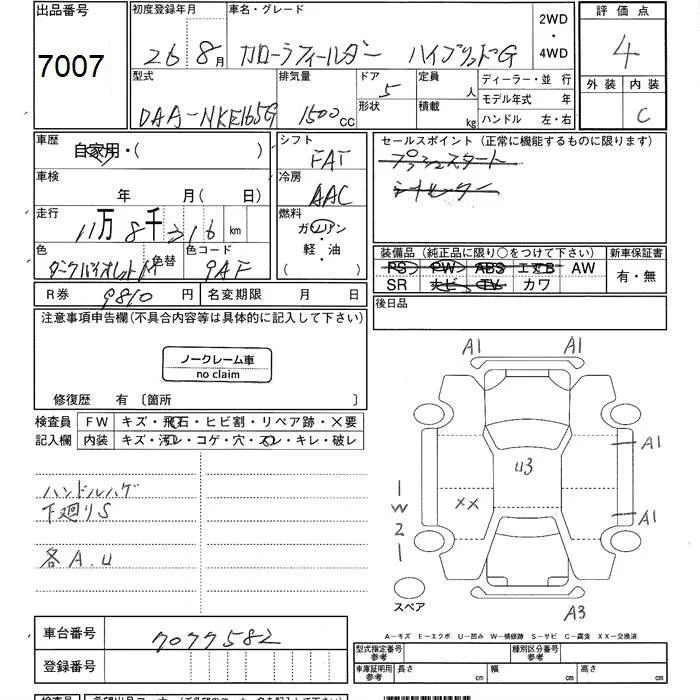 出品番号 初度登録年月 車名・グレード 2WD・4WD 評価点
7007 26 8月 カローラフィールダー ハイブリッドG 4
型式 排気量 ドア 定員 ディーラー・並行 外装 内装
DAA-NKE165G 1500cc 5 人 モデル年式 年 C
形状 積載 kg ハンドル 左・右
車歴 自家用・( ) シフト FAT セールスポイント (正常に機能するものに限ります)
プッシュスタート
車検 年 月(日) 冷房 AAC
走行 11万8千316km 燃料 ガソリン・軽・油 ( )
色 ダークバイオレットM 色替 色コード 9AF
装備品 (純正品に限り○をつけて下さい) 新車保証書
PS PW ABS エアB AW 有・無
SR ナビ TV カワ
R券 9810円 名変期限 月 日 後日品
注意事項申告欄(不具合内容等は具体的に記入して下さい)
ノークレーム車
no claim
修復歴 有 〔箇所 〕
検査員 FW キズ・飛石・ヒビ割・リペア跡・×要
記入欄 内装 キズ・汚レ・コゲ・穴・スレ・キレ・破レ
ハンドルハゲ
下廻りS
各A.U
A1 A1
A1
U3
XX
W2
A1
スペア
A3
A-キズ E-エクボ U-凹み W-補修跡 S-サビ C-腐食 XX-交換済
車台番号 7077582
登録番号
型式指定番号 参考 種別区分番号 参考
車庫証明用 参考 長さ cm 幅 cm 高さ cm